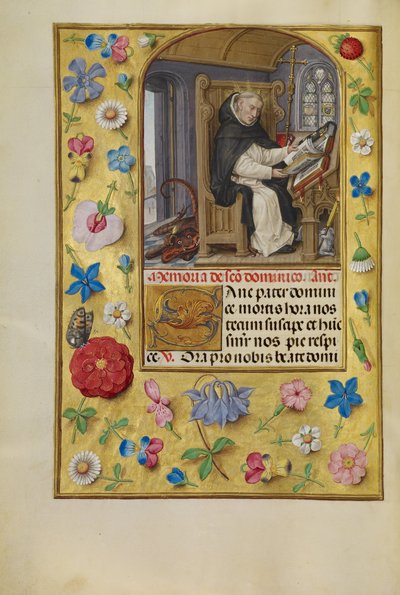 Memoria de sc̄o dominico. Ant.
Ane pater domini
ce mortis hora nos
tecum suscipe et hic
semꝑ nos pie respi
ce. V. Ora pro nobis beate domi